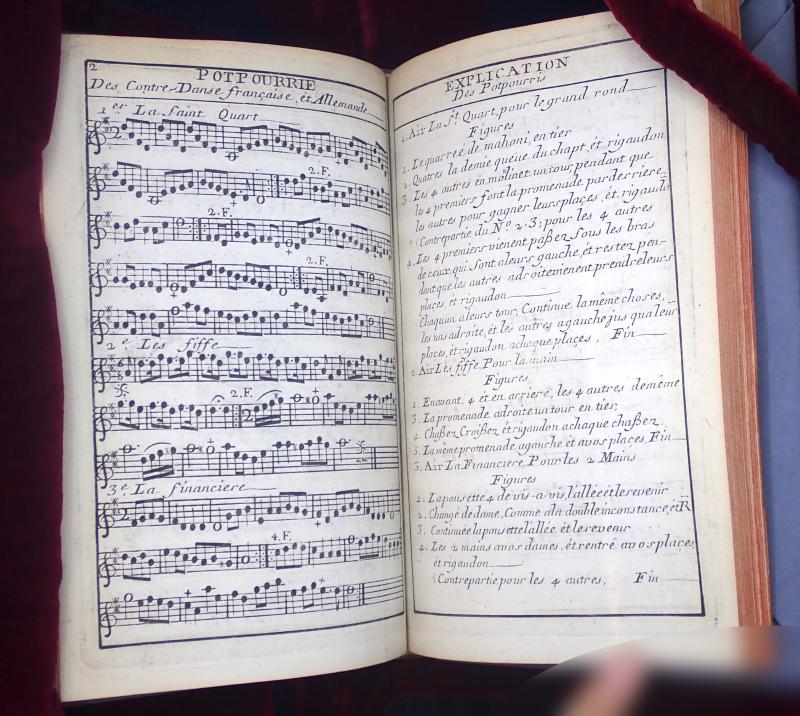 2
POTPOURRIE
Des Contre-Danse française, ét Allemande
1er La Saint Quart
2. F.
2. F.
2. F.
2e Les fiffe
2. F.
3e La financiere
4. F.
EXPLICATION
Des Potpourris
1. Air La St. Quart, pour le grand rond
Figures
1. Le quarreé de mahoni, en tier
2. Quatres la demie queue du chapt, ét rigaudon
3. Les 4 autres en molinet un tour, pendant que
les 4 premiers font la promenade par derriere
les autres pour gagner leurs plaçes, ét rigaudō
Contrepartie du No. 2. 3; pour les 4 autres
4. Les 4 premiers vienent paßez Sous les bras
de ceux qui Sont aleurs gauche, ét restez pen-
dant que les autres adroite vienent prendre leurs
plaçes, ét rigaudon
Chaquun aleurs tour, Continue la même choses,
les uns adroite, ét les autres agauche jusqualeur
plaçes, ét rigaudon achaque plaçes, Fin
2. Air Les fiffe, Pour la main
Figures
1. En avant 4 ét en arriere, les 4 autres demême
3. La promenade adroite un tour en tier,
4. Chaßez, Croißez ét rigaudon achaque chaßez
5. La même promenade agauche ét avos plaçes, Fin
3. Air La Financiere, Pour les 2 Mains
Figures
1. La pousette 4 de vis-a-vis, l'allée ét le revenir
2. Changé de dame, Comme ala double inconstance, ét R
3. Continuée la pousette l'allée ét le revenir
4. Les 2 mains avos dames, ét rentré avos plaçes
ét rigaudon
Contrepartie pour les 4 autres, Fin